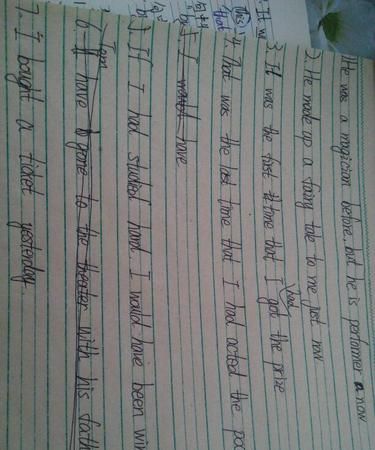 1. He was a magician before, but he is performer a now
2. He made up a fairy tale to me just now.
3. It was the first time that I had got the prize
4. That was the last time that I had acted the poo
5. I would have
If I had studied hard, I would have been win
6. I have gone to the theater with his fath
7. I bought a ticket yesterday.